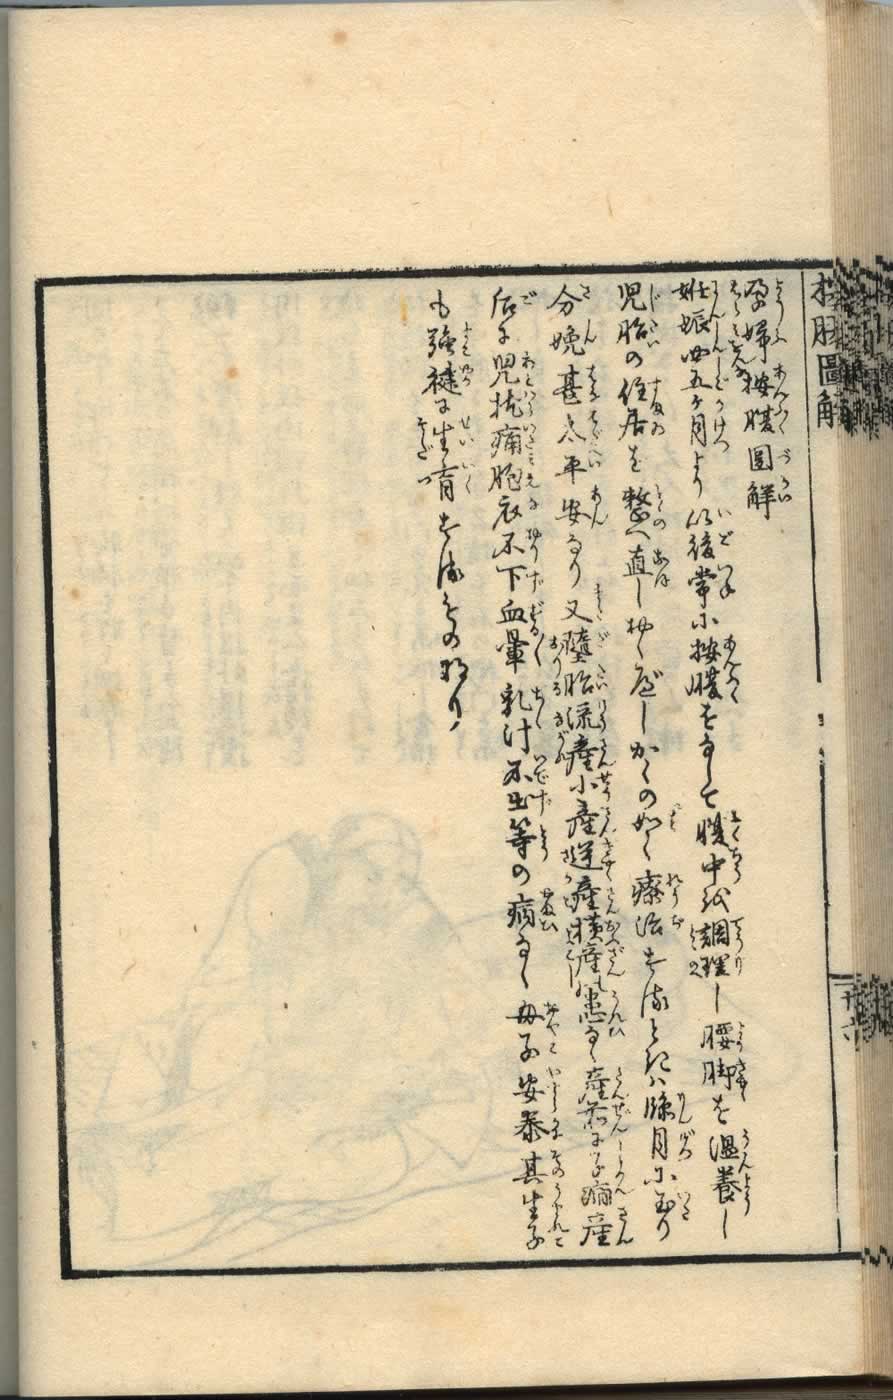 按腹圖解
孕婦按腹圖解
妊娠四五ケ月より以後常に按腹をなして腹中を調理し腰脚を温養し
児胎の住居を整へ直しおくべしかくの如く療治するときハ臨月に至り
分娩甚太平安なり又墮胎流産小産逆産横産の患なく産前に子癇産
后に児枕痛胞衣不下血暈乳汁不出等の病なく母子安泰其生子
も強健に生育するものなり